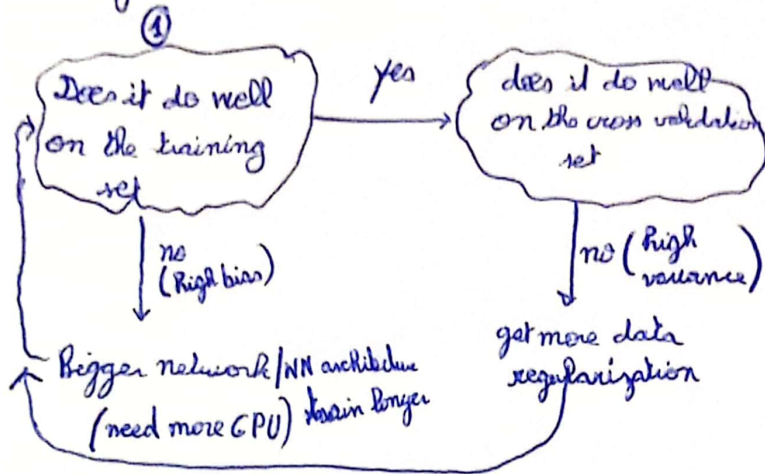 ①
Does it do well
on the training
set
yes
does it do well
on the cross validation
set
no
(High bias)
no (high
variance)
Bigger network/NN architecture
(need more GPU) train longer
get more data
regularization